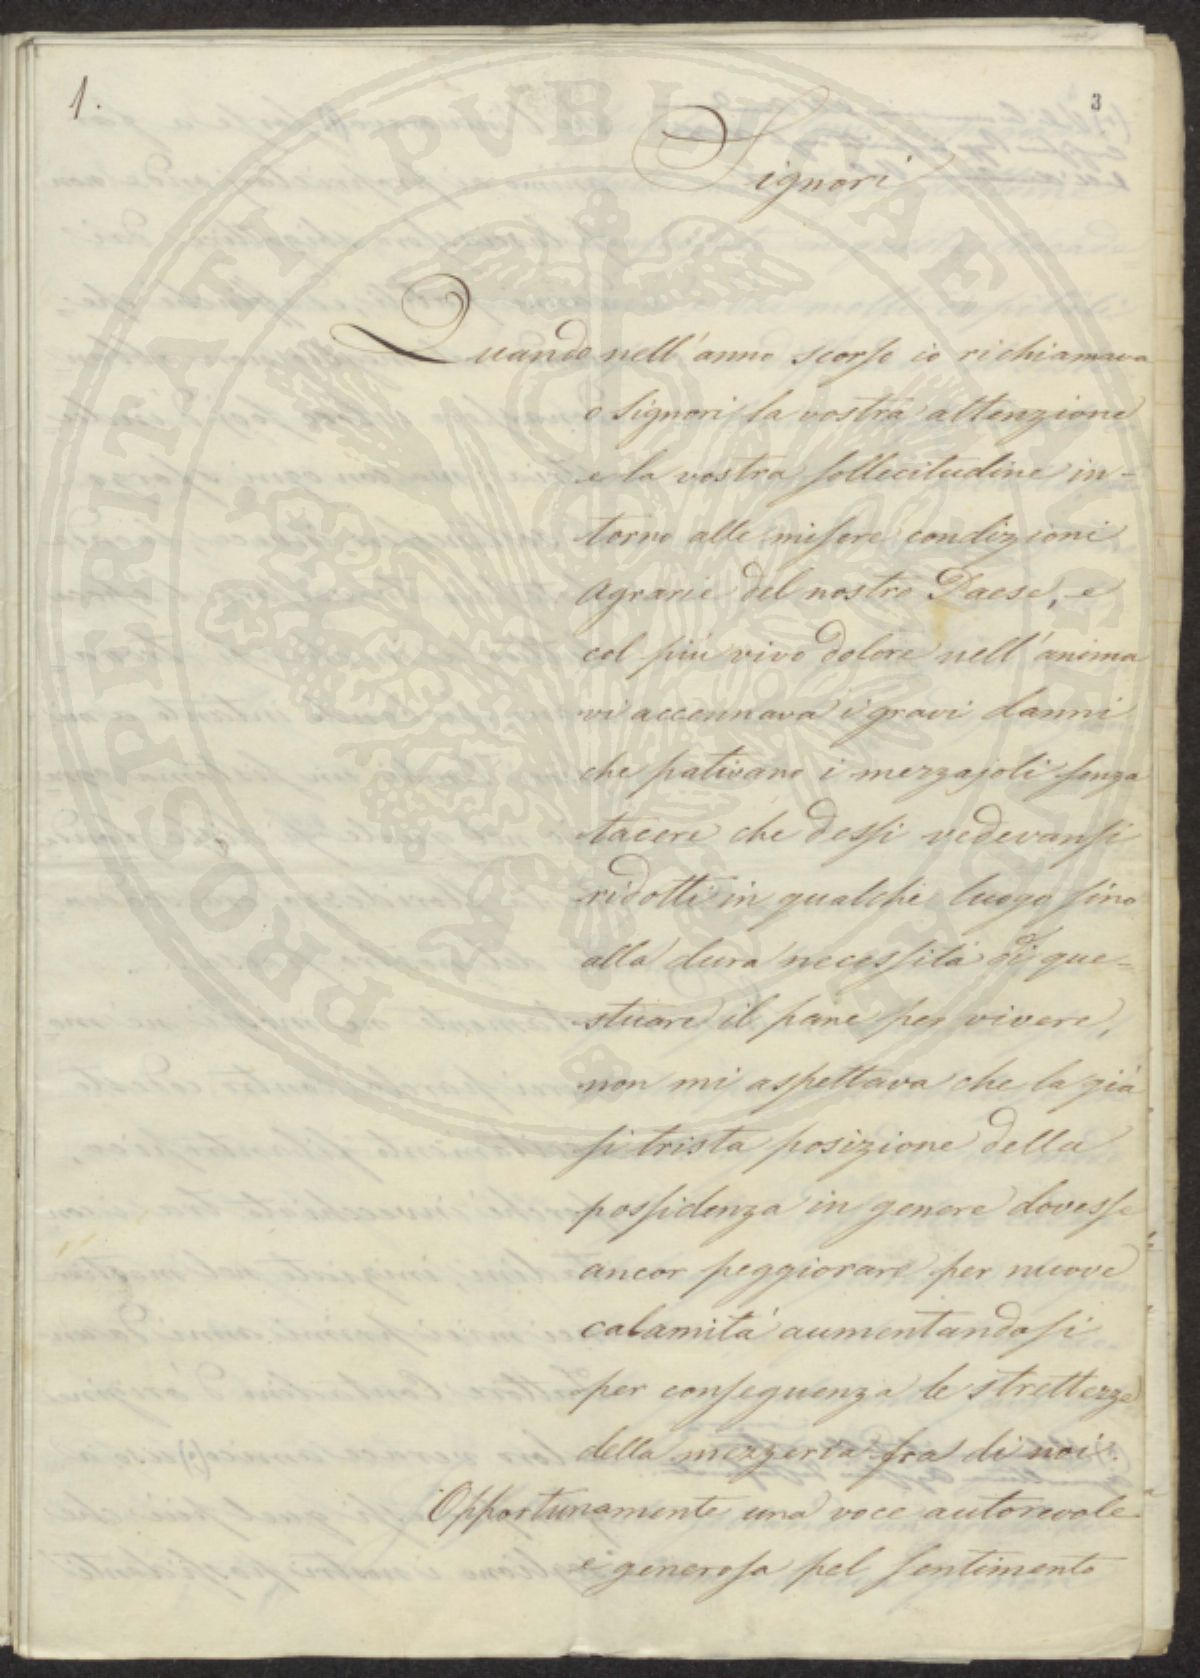 1.
3
Signori
Quando nell'anno scorso io richiamava
o Signori la vostra attenzione
e la vostra sollecitudine in-
torno alle misere condizioni
agrarie del nostro Paese, e
col più vivo dolore nell'anima
vi accennava i gravi danni
che pativano i mezzajoli senza
tacere che dessi vedevansi
ridotti in qualche luogo sino
alla dura necessità di que-
stuare il pane per vivere,
non mi aspettava che la già
si trista posizione della
possidenza in genere dovesse
ancor peggiorare per nuove
calamità aumentandosi
per conseguenza le strettezze
della mezzeria fra di noi.
Opportunamente una voce autorevole
e generosa pel sentimento
PROSPERITATI PVBLICAE AVGENDAE